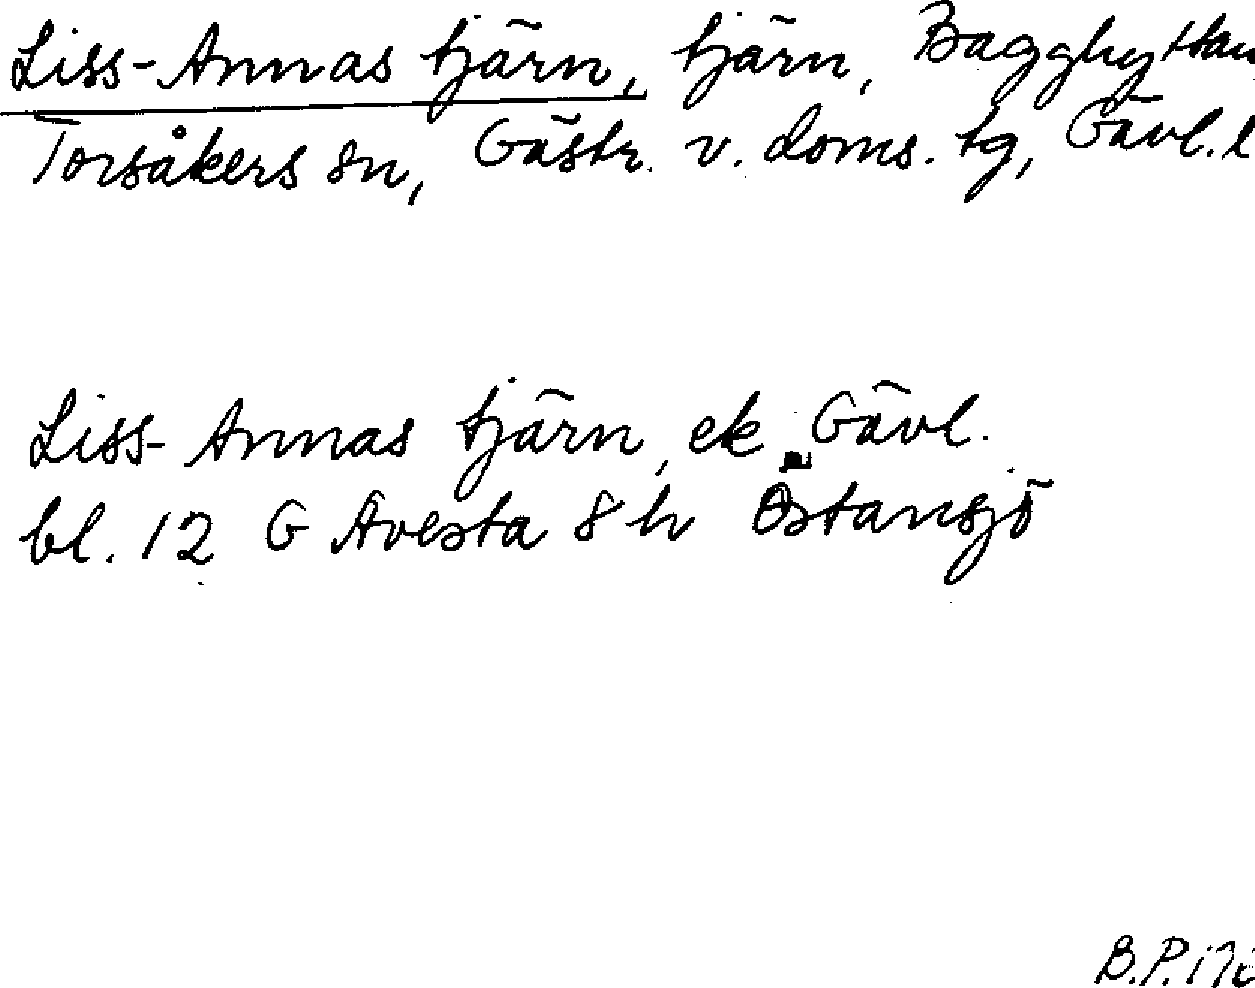 Liss-Annas tjärn, tjärn, Bagghyttan
Torsåkers sn, Gästr. v. doms. tg, Gävl. l
Liss-Annas tjärn, ek Gävl.
bl. 12 G Avesta 8 h Östansjö
B.P.